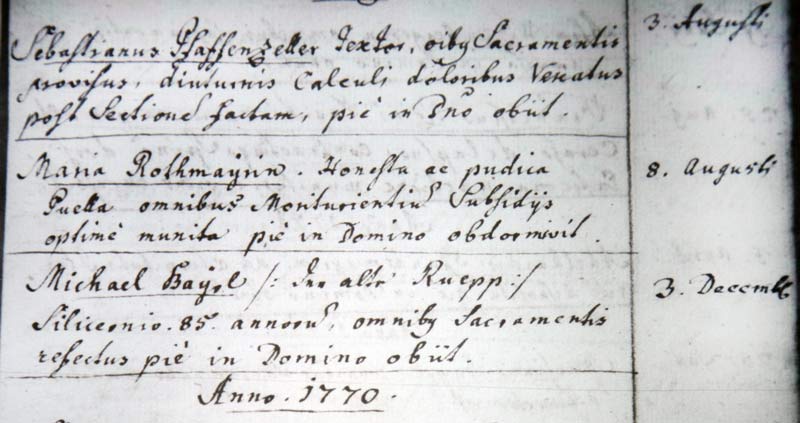 Sebastianus Pfaffenzeller Textor, oiby Sacramentis
provisus, diuturnis Calculi doloribus Vexatus
post Sectione factam, piè in Dno obiit.
3. Augusti
Maria Rothmayrin. Honesta ac pudica
Puella omnibus Moriturientiu Subsidijs
optimè munita piè in Domino obdormivit.
8. Augusti
Michael Bayrl /: der alte Ruepp :/
85. annoru, omniby Sacramentis
refectus piè in Domino obiit.
3. Decemb
Anno. 1770.